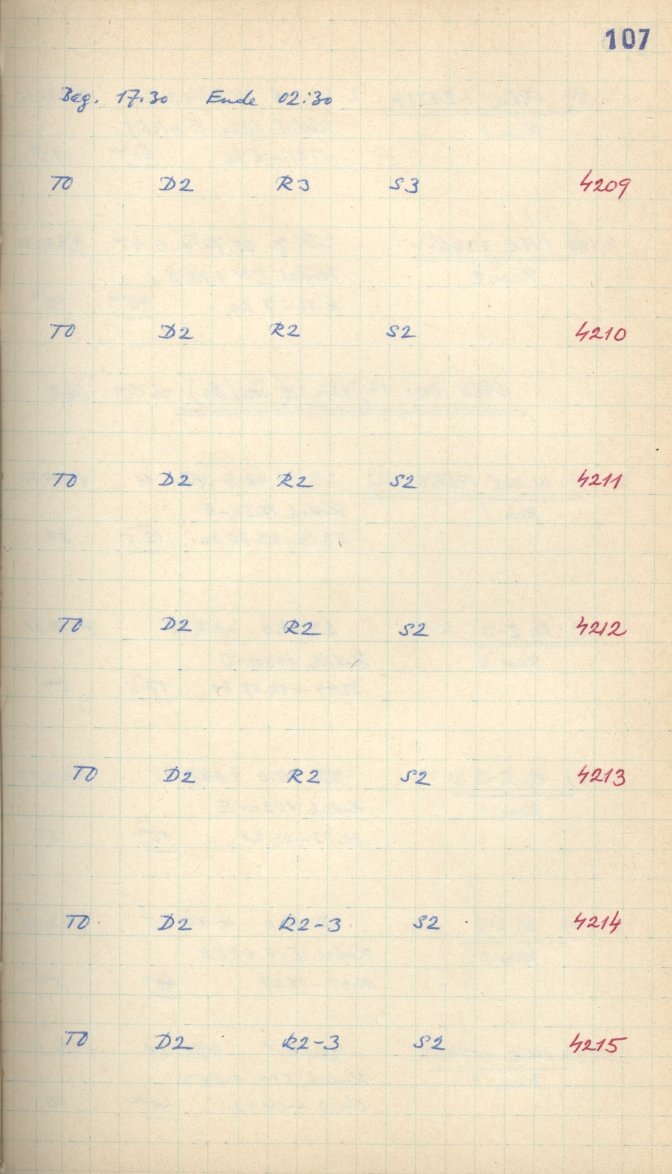 107
Beg. 17.30 Ende 02:30
T0 D2 R3 S3 4209
T0 D2 R2 S2 4210
T0 D2 R2 S2 4211
T0 D2 R2 S2 4212
T0 D2 R2 S2 4213
T0 D2 R2-3 S2 4214
T0 D2 R2-3 S2 4215